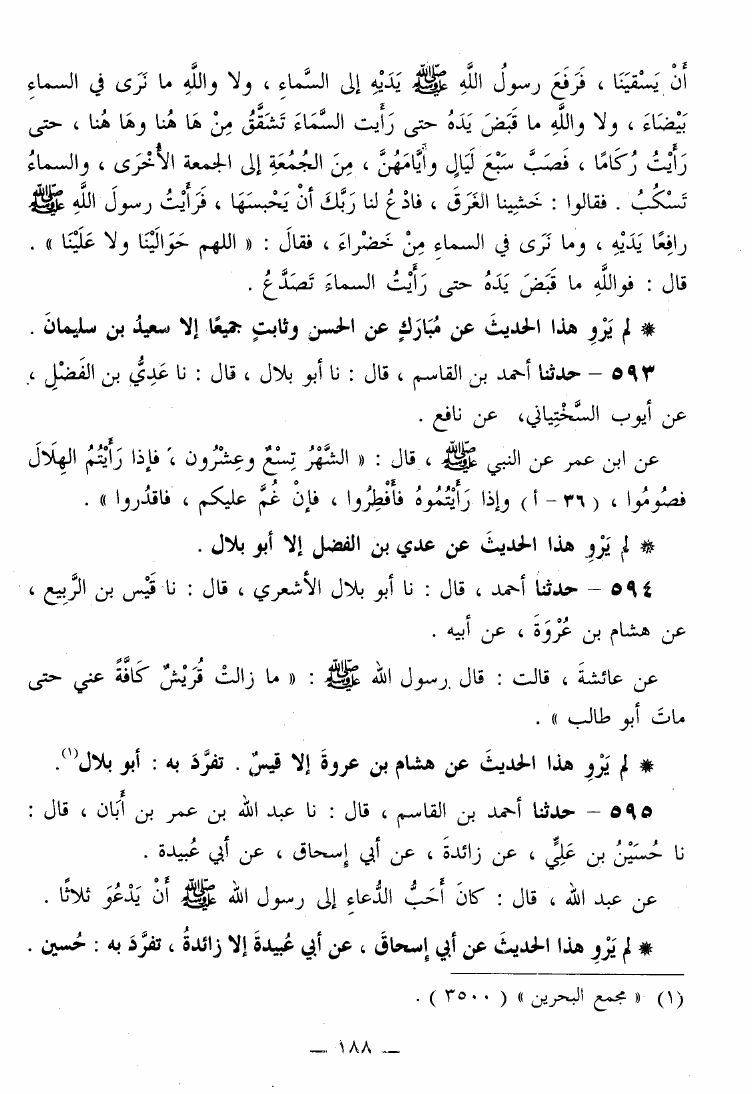 أَنْ يَسْقِيَنَا ، فَرَفَعَ رسولُ اللَّهِ ﷺ يَدَيْهِ إلى السَّماءِ ، ولا واللَّهِ ما نَرَى في السماءِ
بَيْضَاءَ ، ولا واللَّهِ ما قَبَضَ يَدَهُ حتى رَأَيت السَّمَاءَ تَشَقَّقُ مِنْ هَا هُنا وها هُنا ، حتى
رَأَيْتُ رُكَامًا ، فَصَبَّ سَبْعَ لَيَالٍ وأيَّامَهُنَّ ، مِنَ الجُمُعَةِ إلى الجمعة الأُخْرَى ، والسماءُ
تَسْكُبُ . فقالوا : خَشِينا الغَرَقَ ، فادْعُ لنا رَبَّكَ أنْ يَحْبِسَهَا ، فَرَأَيْتُ رسولَ اللَّهِ ﷺ
رافِعًا يَدَيْهِ ، وما نَرَى في السماءِ مِنْ خَضْراءَ ، فقالَ : « اللهم حَوَالَيْنَا ولا عَلَيْنَا » .
قال : فواللَّهِ ما قَبَضَ يَدَهُ حتى رَأَيْتُ السماءَ تَصَدَّعُ .
* لم يَرْوِ هذا الحديثَ عن مُبَارَكٍ عن الحسن وثابتٍ جميعًا إلا سعيدُ بن سليمانَ .
٥٩٣ – حدثنا أحمد بن القاسم ، قال : نا أبو بلال ، قال : نا عَدِيُّ بن الفَضْلِ ،
عن أيوب السَّخْتِياني، عن نافع .
عن ابن عمر عن النبي ﷺ ، قال : « الشَّهْرُ تِسْعٌ وعِشْرُون ، فإذا رَأَيْتُم الهِلَالَ
فصُومُوا ، ( ٣٦ – أ ) وإذا رَأَيْتُمُوهُ فأَفْطِرُوا ، فإنْ غُمَّ عليكم ، فاقدُروا » .
* لم يَرْوِ هذا الحديثَ عن عدي بن الفضل إلا أبو بلال .
٥٩٤ – حدثنا أحمد ، قال : نا أبو بلال الأشعري ، قال : نا قَيْس بن الرَّبِيع ،
عن هشام بن عُرْوَةَ ، عن أبيه .
عن عائشةَ ، قالت : قال رسول الله ﷺ : « ما زالتْ قُرَيْشٌ كَافَّةً عني حتى
ماتَ أبو طالب » .
* لم يَرْوِ هذا الحديثَ عن هشام بن عروةَ إلا قيسٌ . تفرَّدَ به : أبو بلال(١).
٥٩٥ – حدثنا أحمد بن القاسم ، قال : نا عبد الله بن عمر بن أَبَان ، قال :
نا حُسَيْنُ بن عَلِيٍّ ، عن زائدةَ ، عن أبي إسحاق ، عن أبي عُبيدة .
عن عبد الله ، قال : كانَ أَحَبُّ الدُّعاءِ إلى رسول الله ﷺ أَنْ يَدْعُوَ ثلاثًا .
* لم يَرْوِ هذا الحديثَ عن أبي إسحاقَ ، عن أبي عُبيدةَ إلا زائدةُ ، تفرَّدَ به : حُسين .
(١) « مجمع البحرين » ( ٣٥٠٠ ) .
— ١٨٨ —